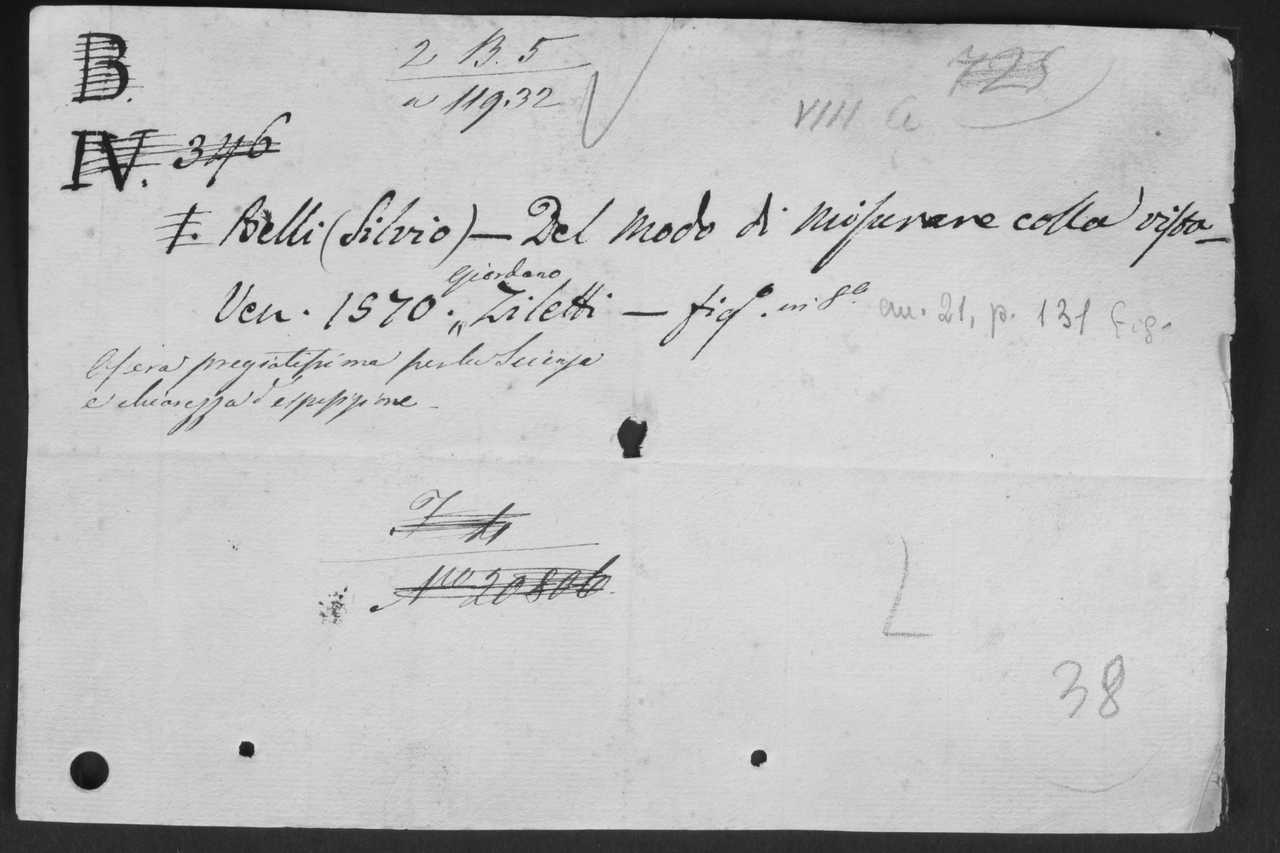 B.
2 B. 5
a 119.32
723
VIII
IV. 346
I. Belli (Silvio) — Del modo di misurare colla vista —
Ven. 1570. Giordano Ziletti — fig.o in 8.o cm. 21, p. 131 fig.
Opera pregiatissima per la Scienza
e chiarezza d'esposizione —
No 20806
L
38